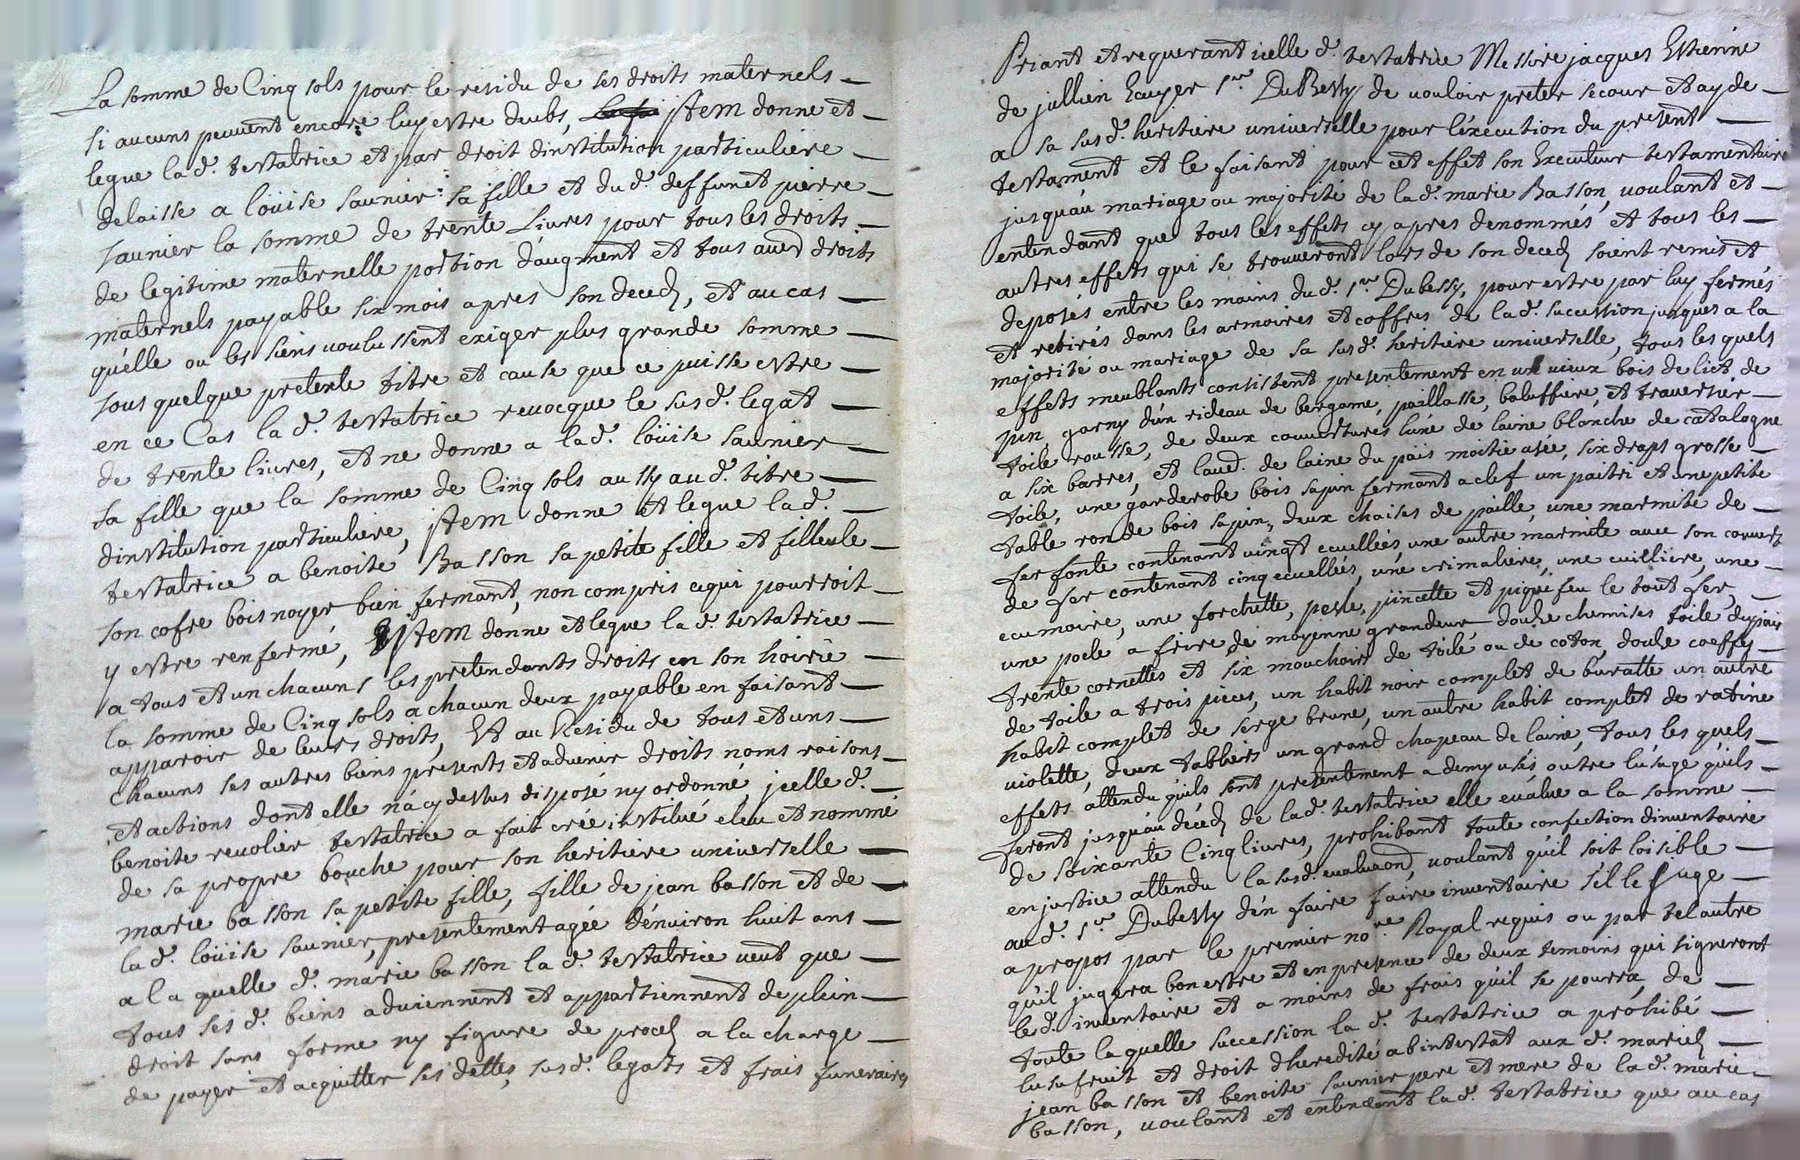 La somme de Cinq sols pour le residu de ses droits maternels
si aucuns peuvent encore luy estre deubs, jtem donne et
legue la d. testatrice et par droit dinstitution particuliere
delaisse a loüise saunier sa fille et du d. deffunct pierre
saunier la somme de trente Livres pour tous les droits
de legitime maternelle portion daugment et tous aues droits
maternels payable six mois apres son deced, et au cas
quélle ou les siens voulussent exiger plus grande somme
sous quelque pretexte titre et cause que ce puisse estre
en ce Cas la d. testatrice revocque le sus d. legat
de trente livres, et ne donne a la d. loüise saunier
sa fille que la somme de Cinq sols aussy au d. titre
dinstitution particuliere, jtem donne et legue la d.
testatrice a benoite Basson sa petite fille et filleule
son cofre bois noyer bien fermant, non compris cequi pourroit
y estre renfermé, jtem donne et legue la d. testatrice
a tous et un chacuns les pretendants droits en son hoirie
la somme de Cinq sols a chacun deux payable en faisant
apparoir de leurs droits, Et au Residu de tous et uns
chacuns ses autres biens présents et advenir droits noms raisons
et actions dont elle ná cy dessus disposé ny ordonné, jcelle d.
benoite revolier testatrice a fait crée institué eleu et nommé
de sa propre bouche pour son heritiere universelle
marie basson sa petite fille, fille de jean basson et de
la d. loüise saunier, presentement agée dénviron huit ans
a la quelle d. marie basson la d. testatrice veut que
tous ses d. biens adviennent et appartiennent de plein
droit sans forme ny figure de proced a la charge
de payer et acquitter ses dettes, sus d. legats et frais funeraires
Priant et requerant icelle d. testatrice Messire jacques Estienne
de jullien Ecuyer sr. DuBessy de vouloir prêter secour et ayde
a sa sus d. heritiere universelle pour léxecution du present
testament et le faisant pour cet effet son Executeur testamentaire
jusquáu mariage ou majorité de la d. marie Basson, voulant et
entendant que tous les effets cy apres denommés et tous les
autres effets qui se trouveront lors de son deced soient remis et
deposés entre les mains du d. sr. Dubessy, pour estre par luy fermés
et retirés dans les armoires et coffres de la d. succession jusques a la
majorité ou mariage de sa sus d. heritiere universelle, tous les quels
effets meublants consistent presentement en un vieux bois de lict de
pin garny dún rideau de bergame, paillasse, baluffiere, et traversier
toile rousse, de deux couvertures lune de laine blanche de catalogne
a six barres, et laud. de laine du païs moitié usée, six draps grosse
toile, une garderobe bois sapin fermant a clef un paitri et une petite
table ronde bois sapin, deux chaises de paille, une marmite de
fer fonte contenant vingt ecuellées une autre marmite avec son couvert
de fer contenant cinq ecuellées, une crimaliere, une cuilliere, une
ecumoire, une forchette, pesle, pincette et piquefeu le tout fer,
une poele a frire de moyenne grandeur douze chemises toile du païs
trente cornettes et six mouchoirs de toile ou de coton, douze coeffes
de toile a trois pieces, un habit noir complet de buratte un autre
habit complet de serge brune, un autre habit complet de ratine
violette, deux tabliers un grand chapeau de laine, tous les quels
effets attendu quils sont presentement a demy usés outre lusage quils
feront jusquáu déced de la d. testatrice elle evalue a la somme
de soixante Cinq livres, prohibant toute confection dinventaire
en justice attendu la sus d. evaluaon, voulant quil soit loisible
au d. sr. Dubessy dén faire faire inventaire sil le juge
a propos par le premier nore Royal requis ou par tel autre
quil jugera bon estre et en presence de deux temoins qui signeront
le d. inventaire et a moins de frais quil se pourra, de
toute la quelle succession la d. testatrice a prohibé
lusufruit et droit dheredité abintestat aux d. mariés
jean basson et benoite saunier pere et mere de la d. marie
basson, voulant et entendant la d. testatrice que au cas